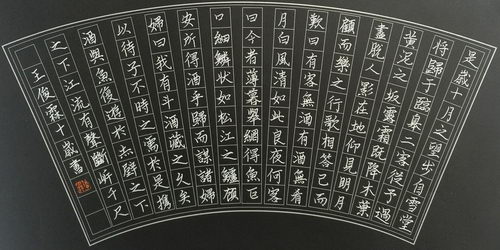 是歲十月之望步自雪堂
將歸于臨皋二客從予過
黃泥之坂霜露既降木葉
盡脫人影在地仰見明月
顧而樂之行歌相答已而
歎曰有客無酒有酒無肴
月白風清如此良夜何客
曰今者薄暮舉網得魚巨
口細鱗狀如松江之鱸顧
安所得酒乎歸而謀諸婦
婦曰我有斗酒藏之久矣
以待子不時之需於是攜
酒與魚復遊於赤壁之下
之下江流有聲斷岸千尺
王俊霖十歲書